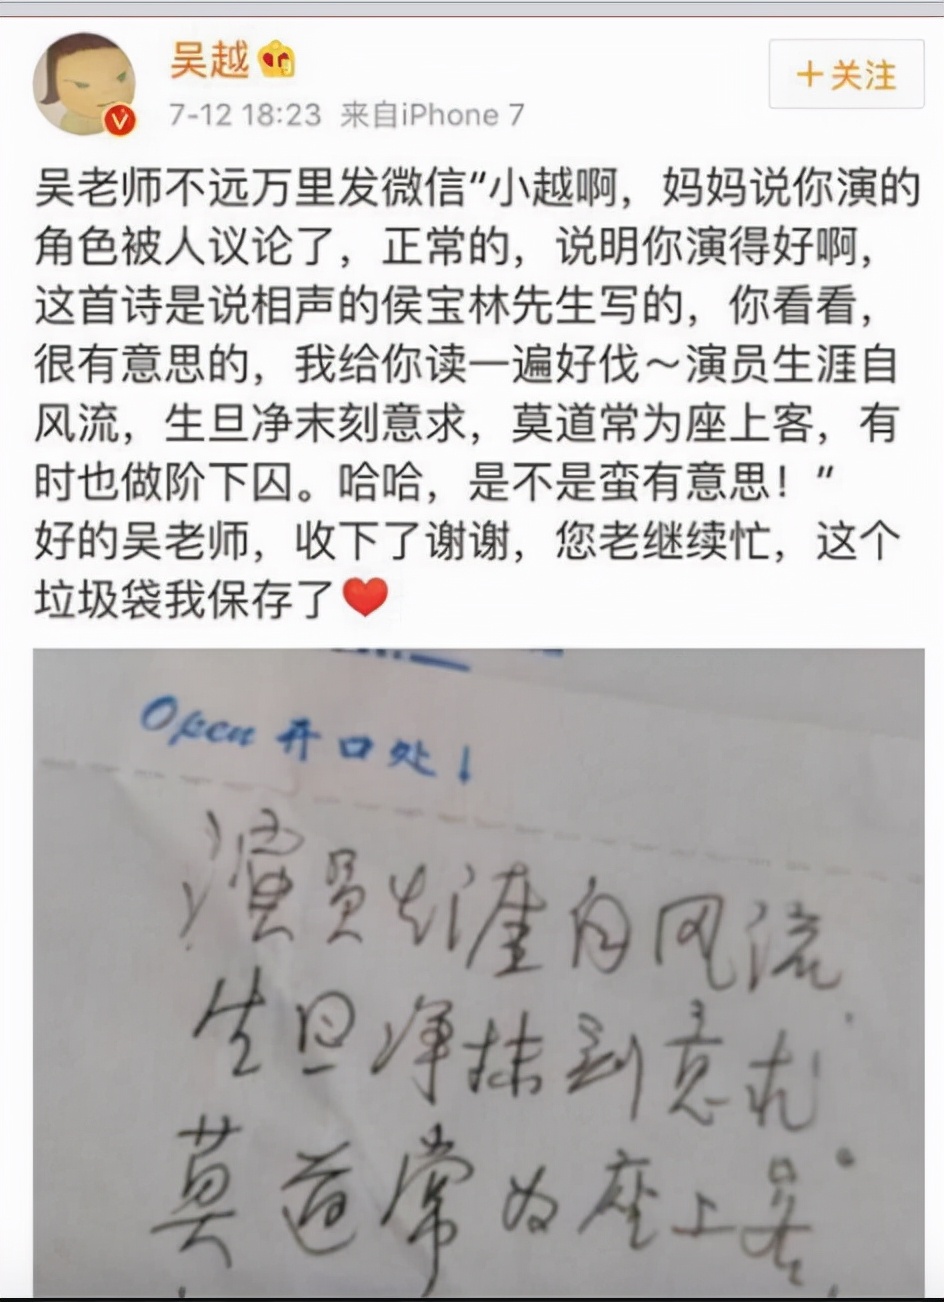 吴越
+关注
7-12 18:23 来自iPhone 7
吴老师不远万里发微信“小越啊，妈妈说你演的
角色被人议论了，正常的，说明你演得好啊，
这首诗是说相声的侯宝林先生写的，你看看，
很有意思的，我给你读一遍好伐～演员生涯自
风流，生旦净末刻意求，莫道常为座上客，有
时也做阶下囚。哈哈，是不是蛮有意思！”
好的吴老师，收下了谢谢，您老继续忙，这个
垃圾袋我保存了❤
Open 开口处↓
演员生涯自风流
生旦净抹刻意求
莫道常为座上客